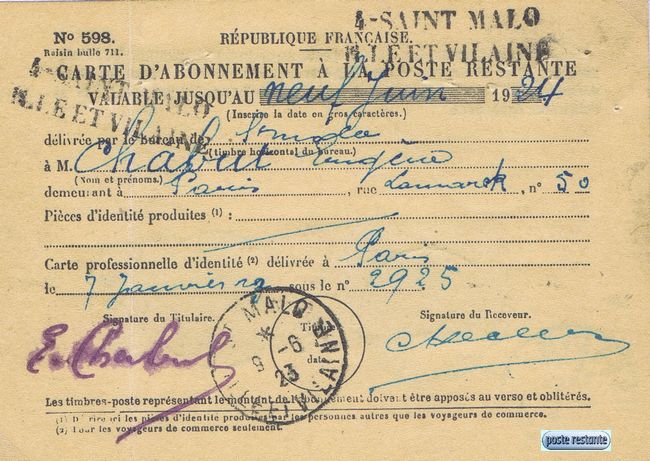 N° 598.
Raisin bulle 711.
RÉPUBLIQUE FRANÇAISE.
4-SAINT MALO
ILLE ET VILAINE
CARTE D'ABONNEMENT À LA POSTE RESTANTE
4-SAINT MALO
ILLE ET VILAINE
VALABLE JUSQU'AU neuf Juin 1924
(Inscrire la date en gros caractères.)
délivrée par le bureau de
(timbre horizontal du bureau.)
à M. Chabut Eugène
(Nom et prénoms.)
demeurant à Paris, rue Lamarck, n° 50
Pièces d'identité produites (1) :
Carte professionnelle d'identité (2) délivrée à Paris
le 7 Janvier 19 sous le n° 2925
Signature du Titulaire.
Timbre
date
Signature du Receveur.
E. Chabut
ST MALO
* 9 -6 23
ILLE ET VILAINE
Les timbres-poste représentant le montant de l'abonnement doivent être apposés au verso et oblitérés.
(1) Décrire ici les pièces d'identité produites par les personnes autres que les voyageurs de commerce.
(2) Pour les voyageurs de commerce seulement.
poste restante